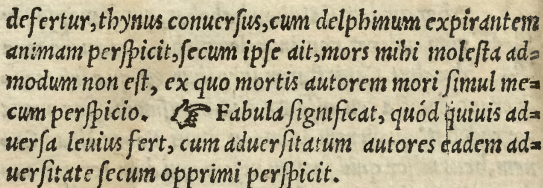 defertur, thynus conuerſus, cum delphinum expirantem
animam perſpicit, ſecum ipſe ait, mors mihi moleſta ad=
modum non eſt, ex quo mortis autorem mori ſimul me=
cum perſpicio. ☞ Fabula ſignificat, quód quiuis ad=
uerſa leuius fert, cum aduerſitatum autores eadem ad=
uerſitate ſecum opprimi perſpicit.